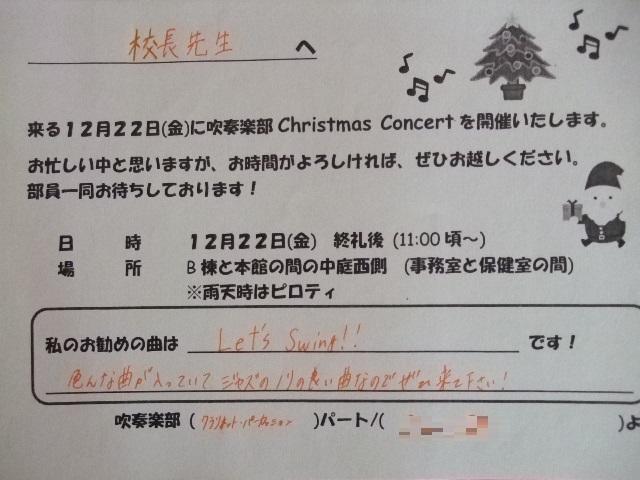 校長先生 へ
来る12月22日(金)に吹奏楽部 Christmas Concert を開催いたします。
お忙しい中と思いますが、お時間がよろしければ、ぜひお越しください。
部員一同お待ちしております！
日 時 12月22日(金) 終礼後 (11:00 頃～)
場 所 B棟と本館の間の中庭西側 (事務室と保健室の間)
※雨天時はピロティ
私のお勧めの曲は Let's Swing!! です！
色んな曲が入っていて ジャズのノリの良い曲なのでぜひ来て下さい！
吹奏楽部 ( クラリネット・パーカッション )パート/( )よ